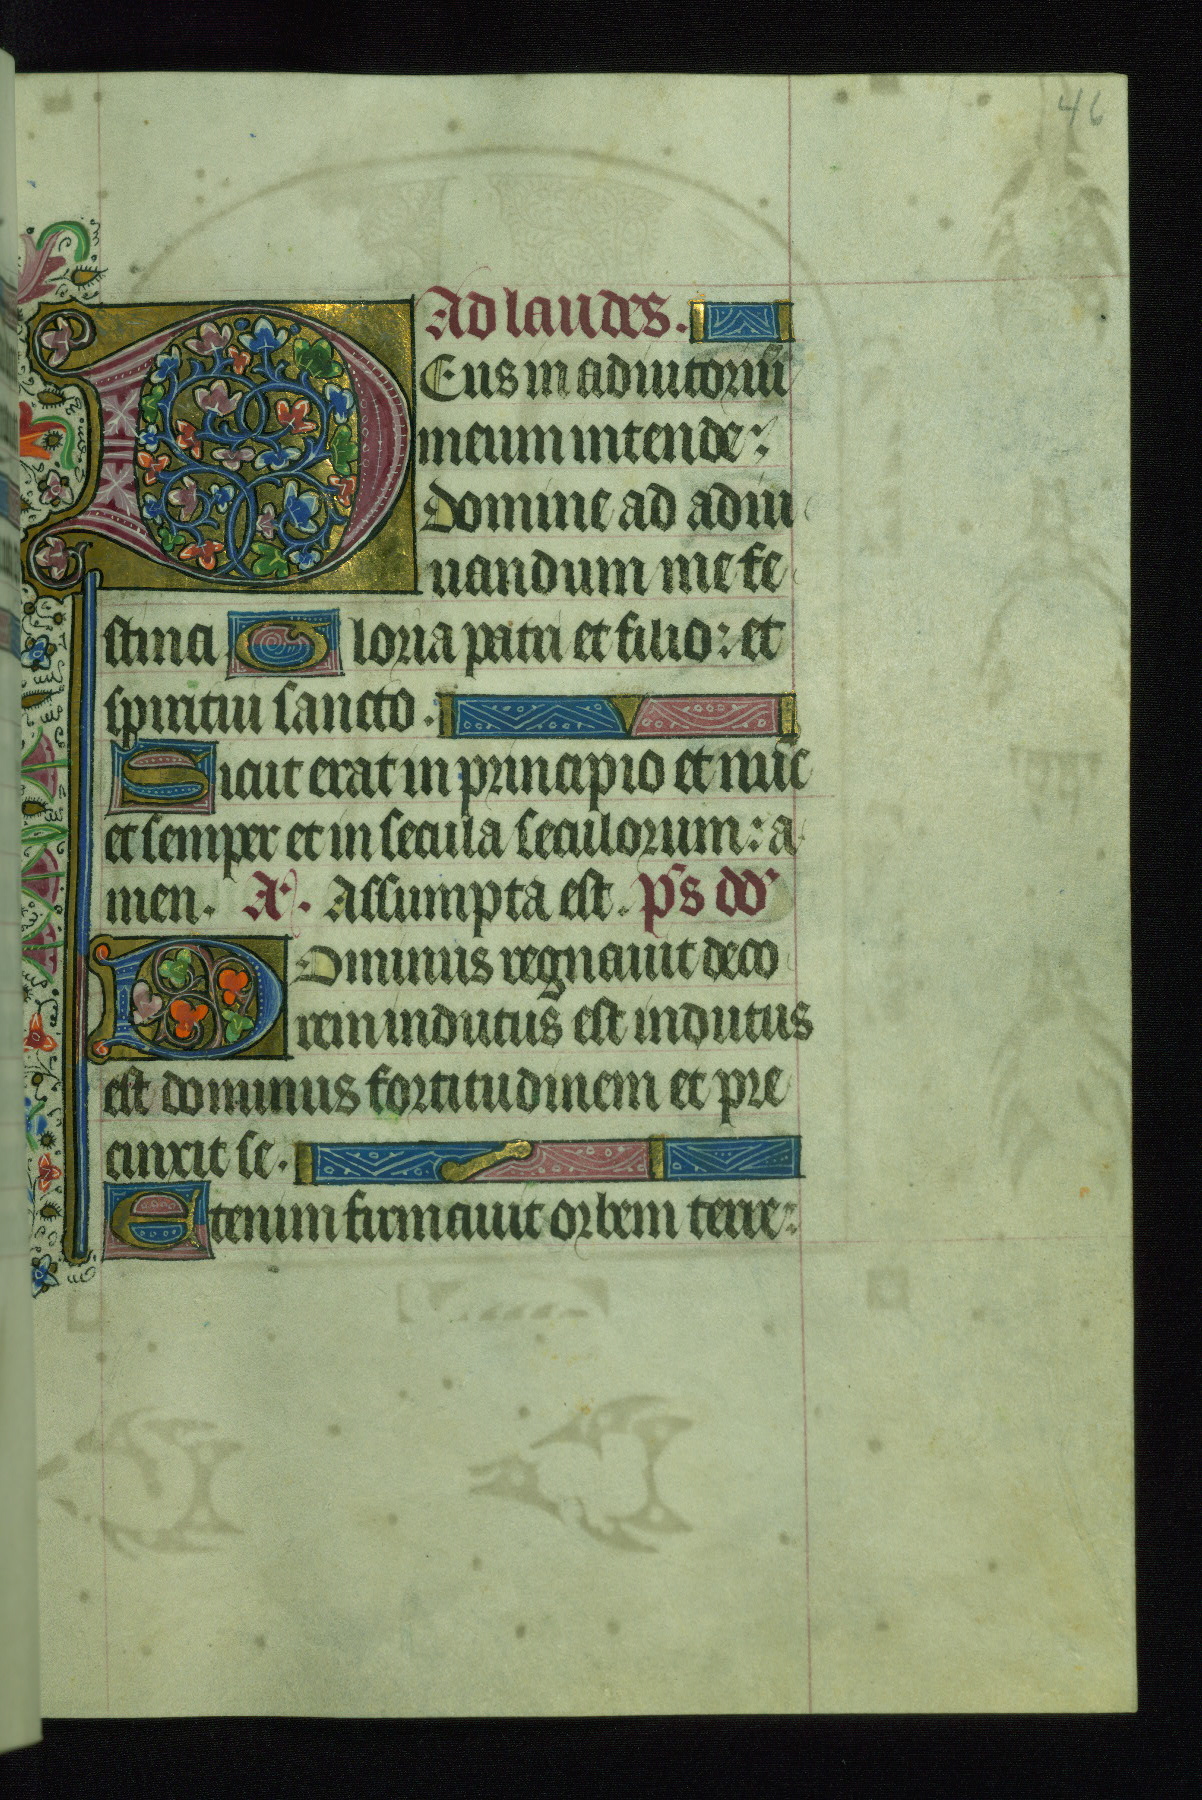 46
Ad laudes.
Deus in adiutoriu͂
meum intende:
Domine ad adiu
uandum me fe
stina Gloria patri et filio: et
spiritui sancto.
Sicut erat in principio et nu͂c
et semper et in secula seculorum: a
men. A. Assumpta est. p̄s dd'
Dominus regnauit deco
rem indutus est indutus
est dominus fortitudinem et pre
cinxit se.
Etenim firmauit orbem terre: